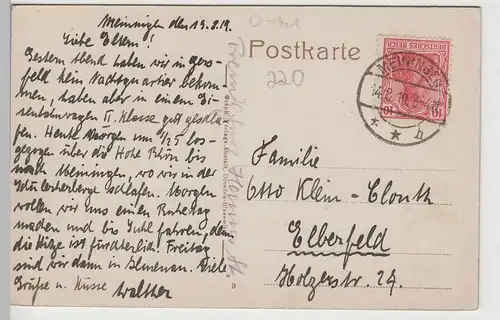 Meiningen den 13.8.19.
Liebe Eltern!
Gestern Abend haben wir in Gers-
feld kein Nachtquartier bekom-
men, haben aber in einem Ei-
senbahnwagen II. Klasse gut geschla-
fen. Heute Morgen um 1/2 5 los-
gezogen über die Hohe Rhön bis
nach Meiningen, wo wir in der
Schülerherberge schlafen. Morgen
wollen wir uns einen Ruhetag
machen und bis Suhl fahren, denn
die Hitze ist fürchterlich. Freitag
sind wir dann in Ilmenau. Viele
Grüße u. Küsse Walther
Postkarte
220
DEUTSCHES REICH
10
MEININGEN
Familie
Otto Klein-Clouth
Elberfeld
Holzerstr. 24.